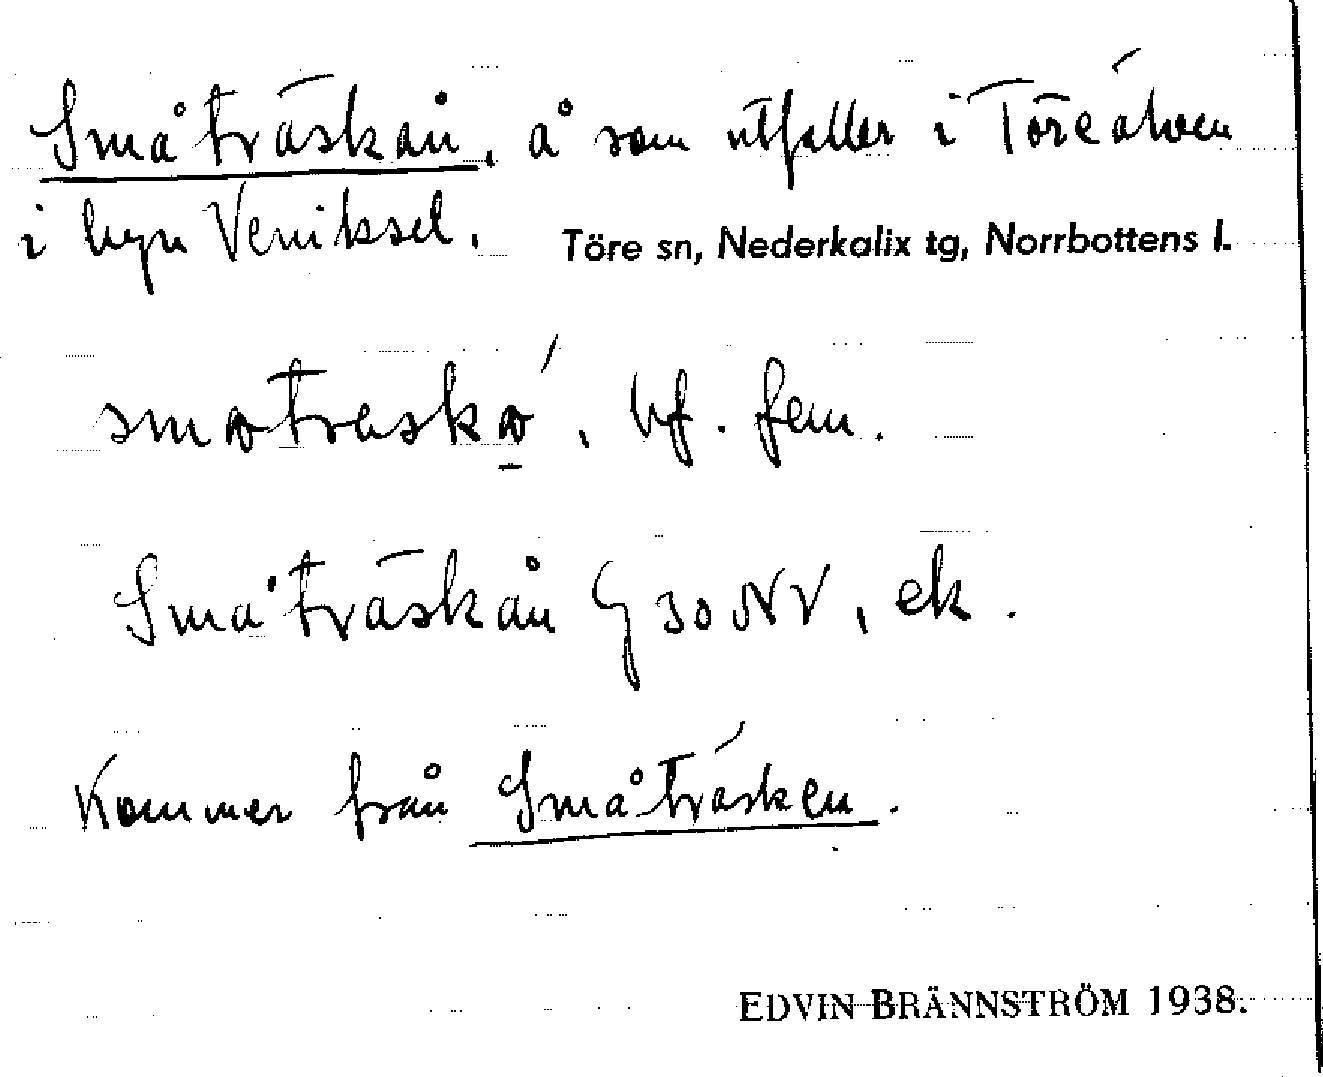 Småträskån, å som utfaller i Töreälven
i byn Veniksel. Töre sn, Nederkalix tg, Norrbottens l.
bf. fem.
Småträskån G 30 NV, ek.
Kommer från Småträsken.
EDVIN BRÄNNSTRÖM 1938.